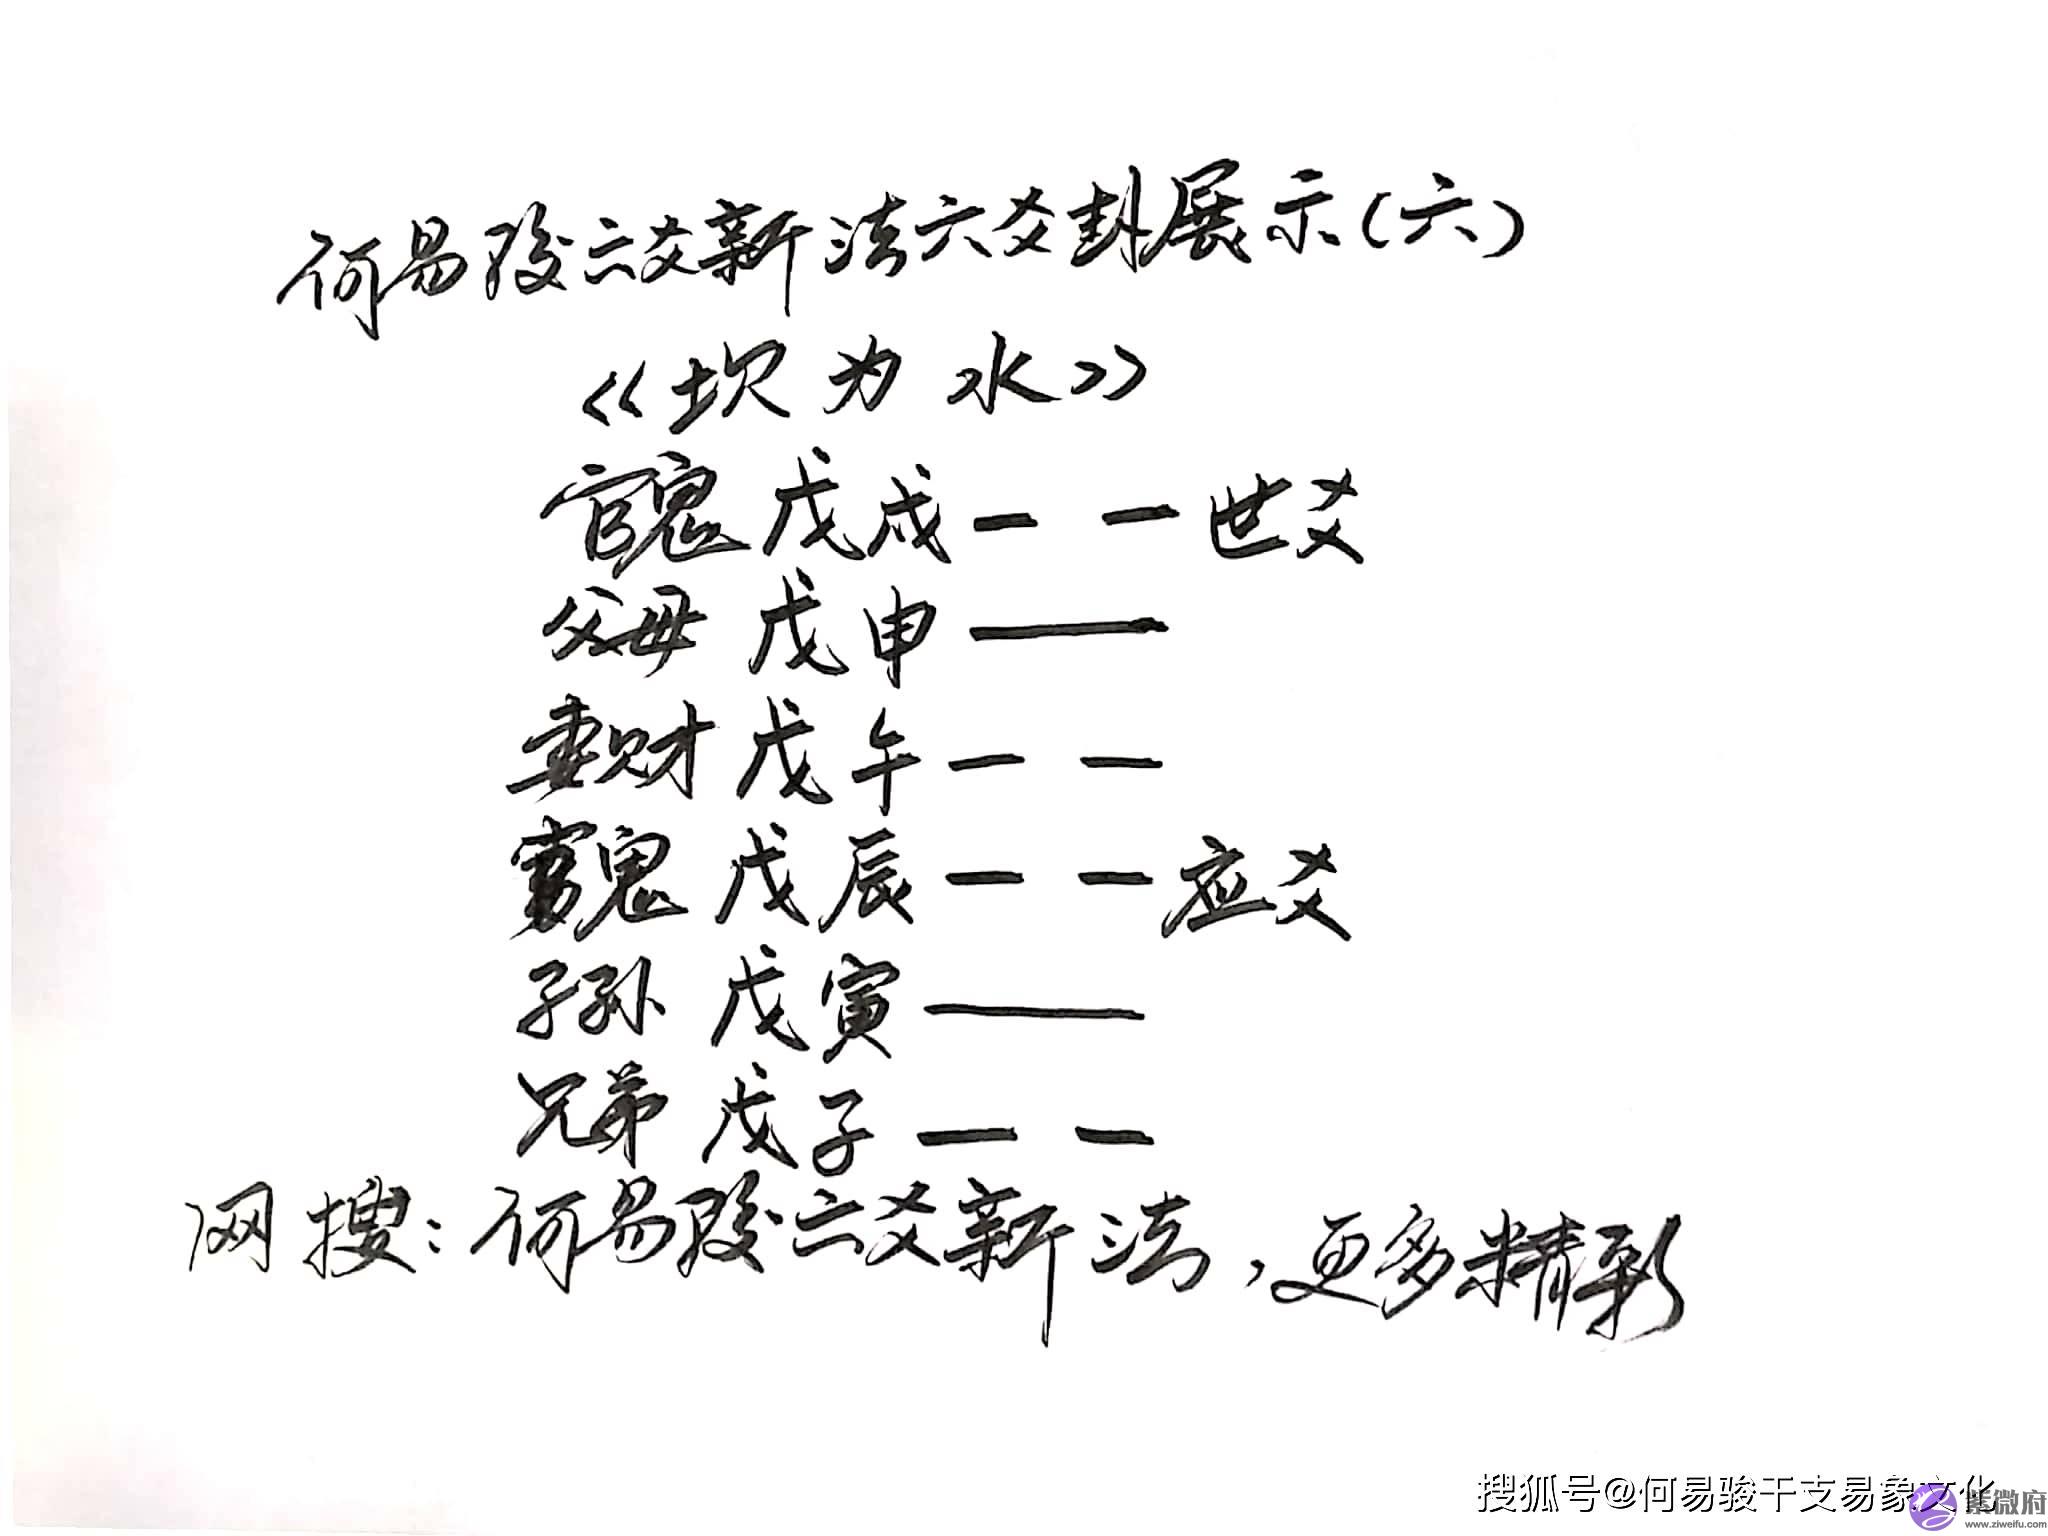 何易骏六爻新法六爻卦展示(六)
《坎为水》
官鬼 戊戌 — — 世爻
父母 戊申 ——
妻财 戊午 — —
官鬼 戊辰 — — 应爻
子孙 戊寅 ——
兄弟 戊子 — —
网搜：何易骏六爻新法，更多精彩
搜狐号@何易骏干支易象文化
紫微府
www.ziweifu.com